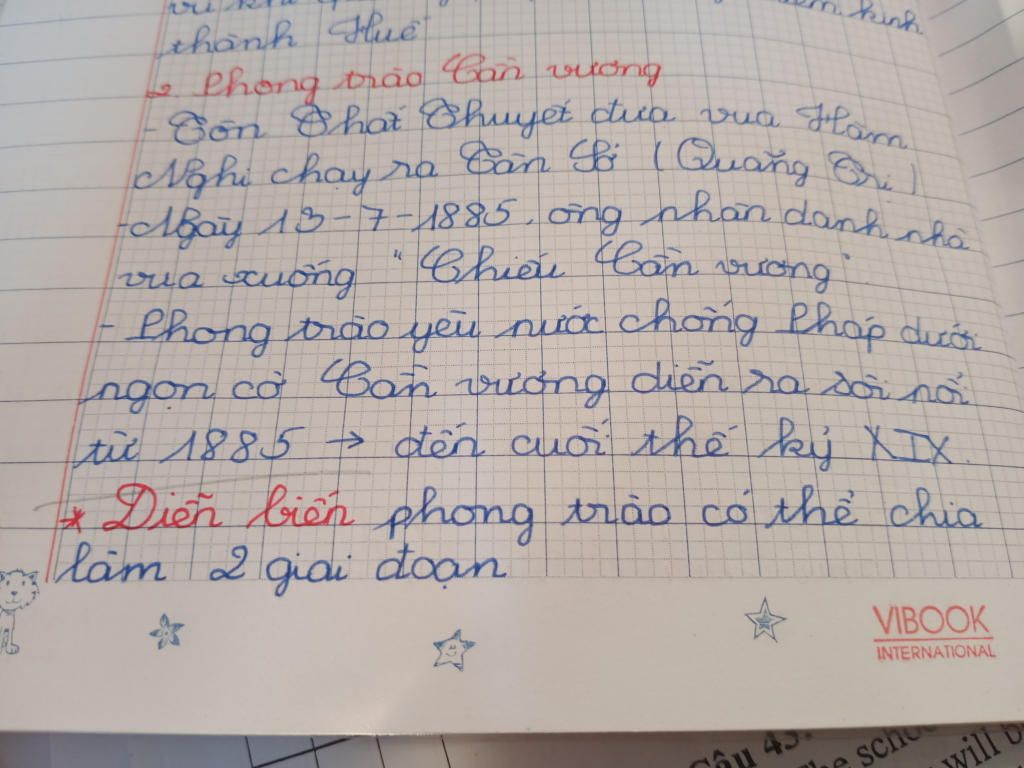 kinh
thành Huế
Phong trào Cần vương
- Tôn Thất Thuyết đưa vua Hàm
Nghi chạy ra Tân Sở (Quảng Trị)
- Ngày 13-7-1885, ông nhân danh nhà
vua xuống "Chiếu Cần vương"
- Phong trào yêu nước chống Pháp dưới
ngọn cờ Cần vương diễn ra sôi nổi
từ 1885 → đến cuối thế kỷ XIX.
* Diễn biến phong trào có thể chia
làm 2 giai đoạn
VIBOOK
INTERNATIONAL
Câu 43.
will b